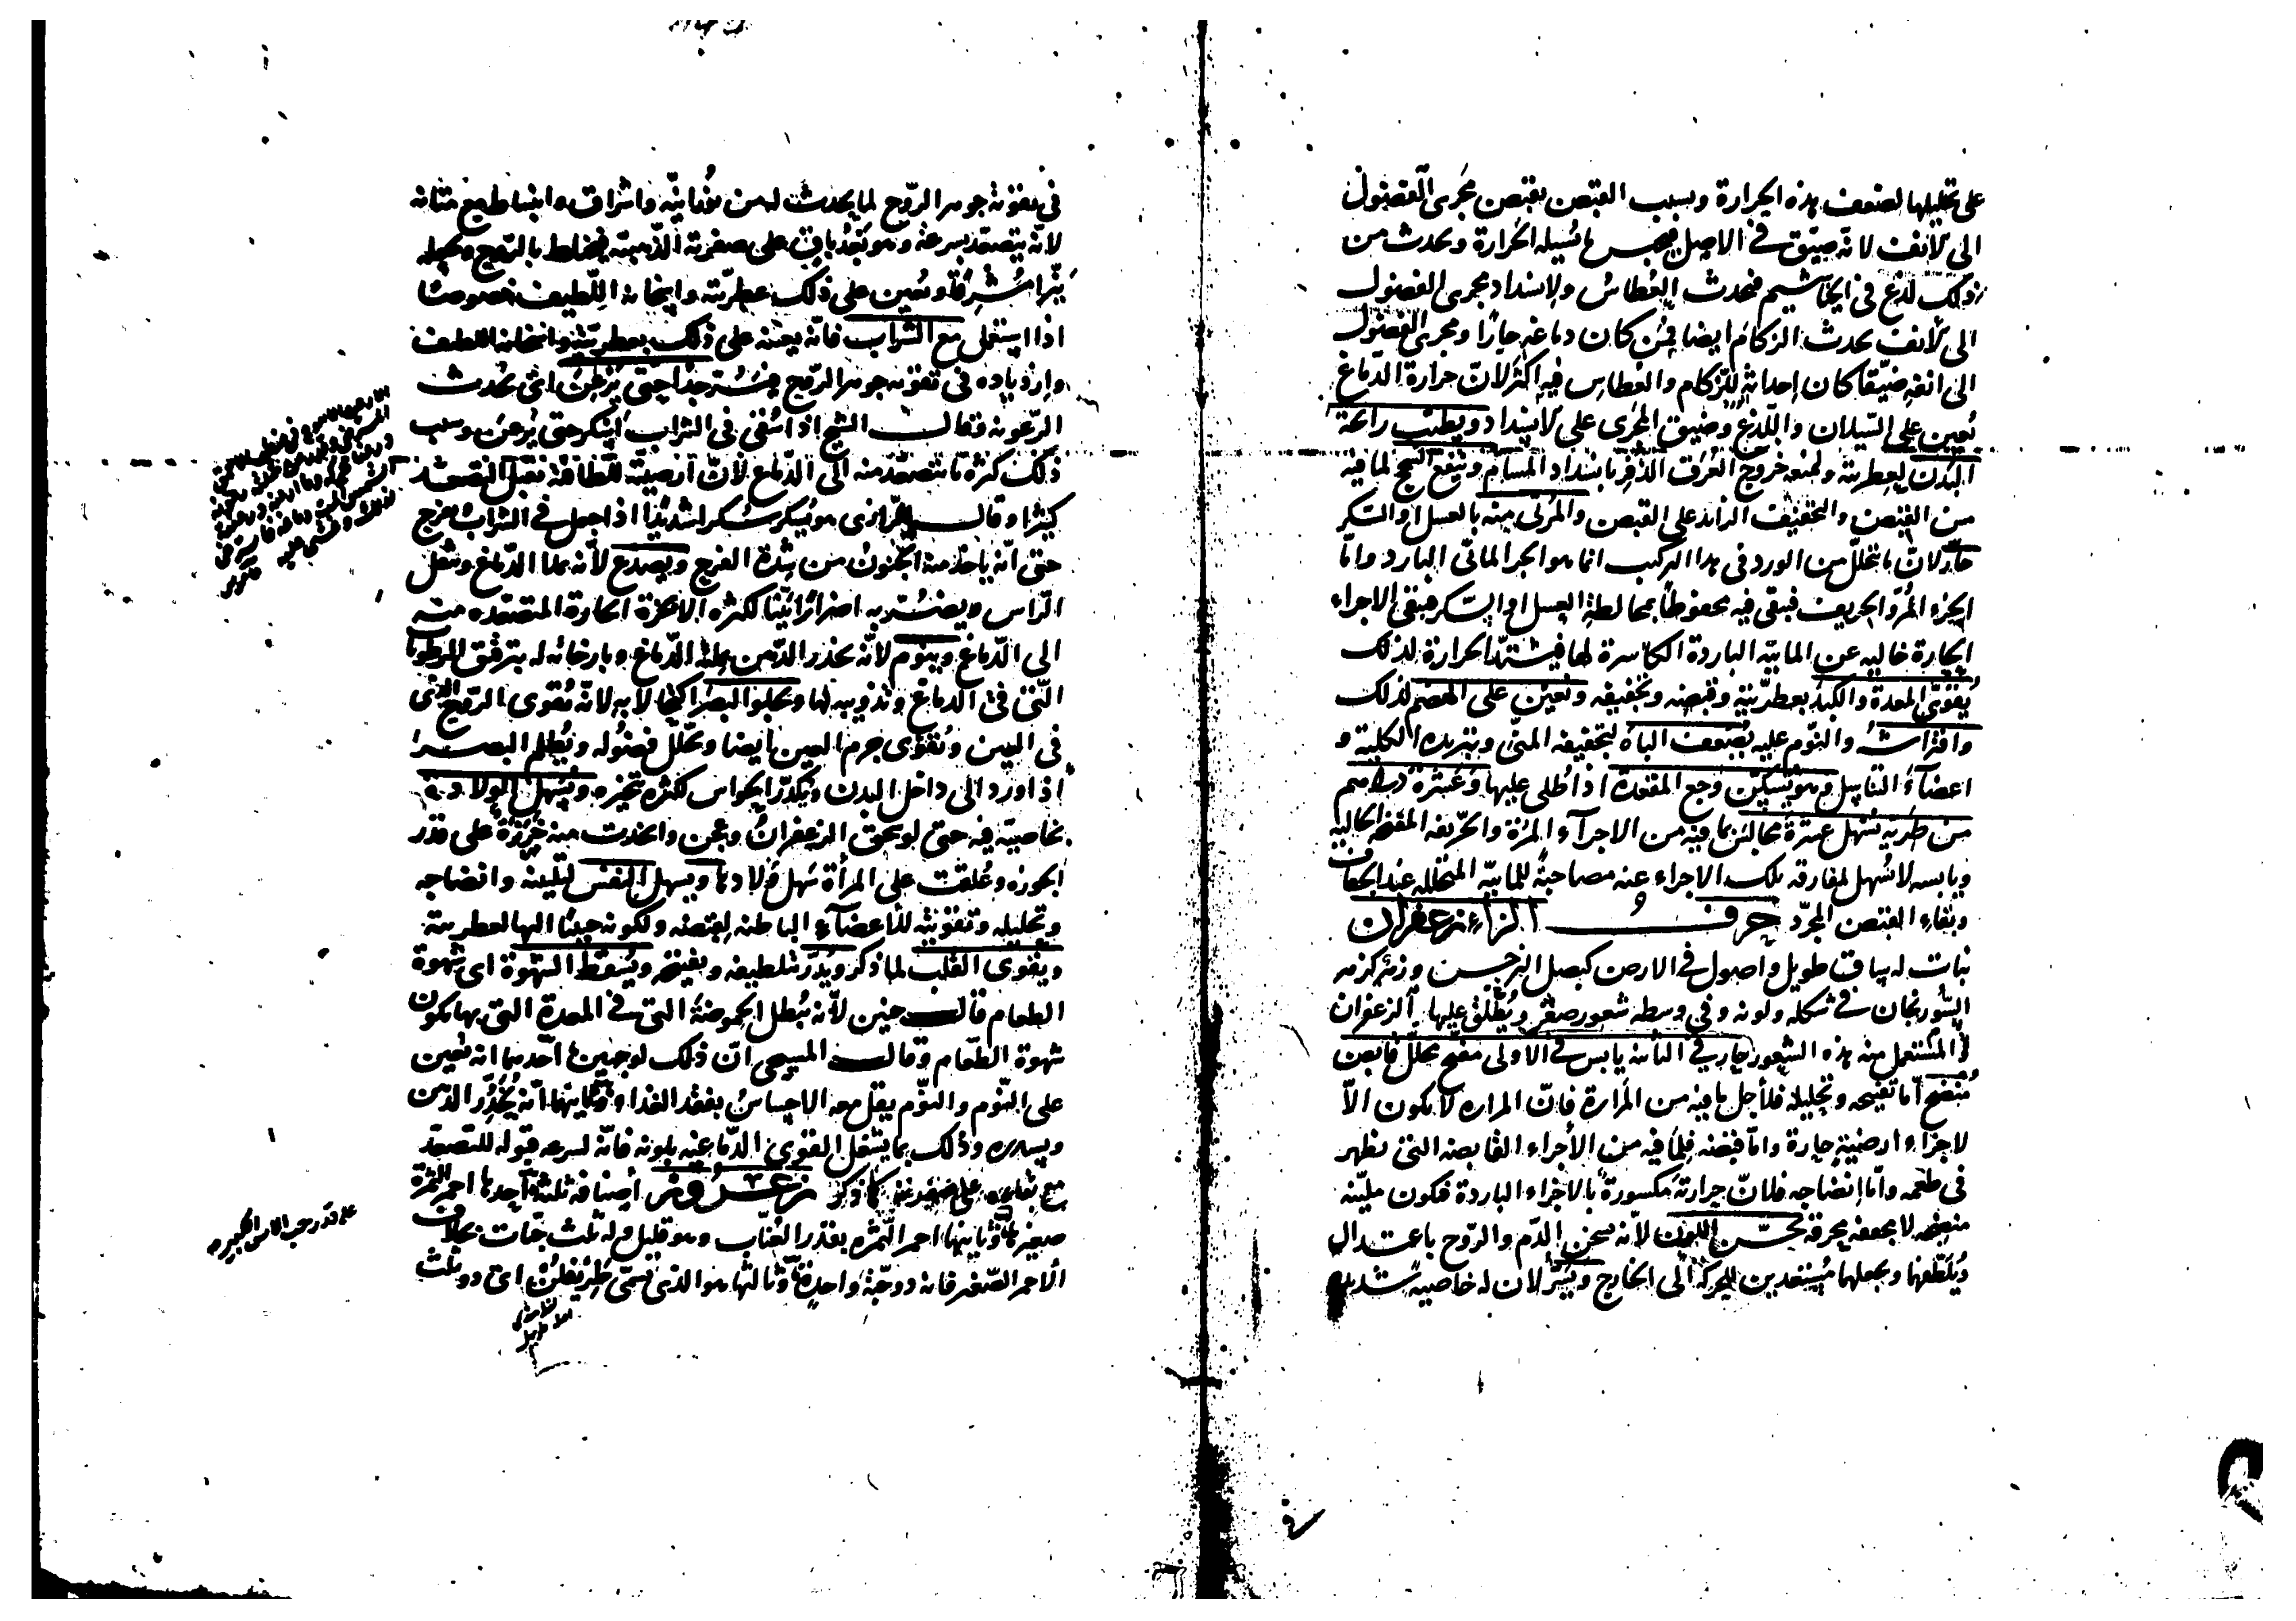 على تحليلها لضعف هذه الحرارة وبسبب القبض يقبض مجرى الفضول
الى الانف لانه ضيق في الاصل فيحبس ما تسيله الحرارة ويحدث من
ذلك لذع في الخياشيم فيحدث العطاس ولانسداد مجرى الفضول
الى الانف يحدث الزكام ايضا فمن كان دماغه حارا ومجرى الفضول
الى انفه ضيقا كان إحداثه للزكام والعطاس فيه اكثر لان حرارة الدماغ
تعين على السيلان واللذع وضيق المجرى على الانسداد ويطيب رائحة
البدن لعطريته ولمنعه خروج العرق الذفر بانسداد المسام وينفع السحج لما فيه
من القبض والتجفيف الزائد على القبض والمربى منه بالعسل او السكر
حار لان ما تحلل من الورد في هذا التركيب انما هو الجزء المائي البارد واما
الجزء المر والحريف فيبقى فيه محفوظا بمخالطة العسل او السكر فيبقى الاجزاء
الحارة خاليه عن المائيه الباردة الكاسرة لها فيشتد الحرارة لذلك
يقوى المعدة والكبد بعطريته وقبضه وتجفيفه وتعين على الهضم لذلك
وافتراشه والنوم عليه يضعف الباه لتجفيفه المني وتبريده الكلية و
اعضاء التناسل وهو يسكن وجع المقعدة اذا طلى عليها وعشرة دراهم
من طريه تسهل عشرة مجالس بما فيه من الاجزاء المرة والحريفه المفتحه الجاليه
ويابسه لا تسهل لمفارقه تلك الاجزاء عنه مصاحبة للمائيه المتحلله عند الجفاف
وبقاء القبض المجرد حرف الزاء زعفران
نبات له ساق طويل واصول في الارض كبصل النرجس وزهر كزهر
السورنجان في شكله ولونه وفي وسطه شعور صفر ويطلق عليها الزعفران
المستعمل منه هذه الشعور حار في الثانيه يابس في الاولى مفتح محلل قابض
منضج اما تفتيحه وتحليله فلأجل ما فيه من المرارة فان المراره لا يكون الا
لاجزاء ارضية حارة واما قبضه فلما فيه من الأجزاء القابضه التي تظهر
في طعمه واما إنضاجه فلان حرارته مكسورة بالاجزاء الباردة فيكون ملينه
منضجه لا مجففه محرقه يحسن اللون لانه يسخن الدم والروح باعتدال
ويلطفها ويجعلها مستعدين للحركة الى الخارج ويسر لان له خاصية شديدة
في تقوية جوهر الروح لما يحدث له من نورانية واشراق وانبساط مع متانه
لانه يتصعد بسرعة وهو بعد باق على صفرته الذهبيه فيخلط بالروح ويجعله
نيرا مشرقا ويعين على ذلك عطريته واسخانه اللطيف خصوصا
اذا استعمل مع الشراب فانه يعينه على ذلك بعطريته واسخانه اللطيف
وازدياده في تقويه جوهر الروح فيسر جدا حتى يرعن اى يحدث
الرعونه وقال الشيخ اذا سقى في الشراب اسكر حتى يرعن وسبب
ذلك كثرة ما يتصعد منه الى الدماغ لان ارضيته للطافته تقبل التصعد
كثيرا وقال الرازي هو يسكر سكرا شديدا اذا جعل في الشراب ويفرح
حتى انه ياخذ منه الجنون من شدة الفرح ويصدع لانه يملا الدماغ ويثقل
الراس ويضر به اضرارا بينا لكثره الابخرة الحارة المتصعده منه
الى الدماغ وينوم لانه يخدر الذهن بملئه الدماغ وبارخائه له بترقيق الرطوبات
التي في الدماغ وتذويبه لها ويجلو البصر اكتحالا به لانه يقوى الروح الذي
في العين ويقوى جرم العين ايضا ويحلل فضوله ويظلم البصر
اذا ورد الى داخل البدن ويكدر الحواس لكثرة تبخيره ويسهل الولادة
بخاصية فيه حتى لو سحق الزعفران وعجن واتخذت منه خرزة على قدر
الجوزه وعلقت على المرأة سهل ولادها ويسهل النفس لتليينه وانضاجه
وتحليله وتقويته للأعضاء الباطنه لقبضه ولكونه حبيبا اليها لعطريته
ويقوى القلب لما ذكر ويدر لتلطيفه وتفتيحه ويسقط الشهوة اى شهوة
الطعام قال حنين لانه يبطل الحموضة التي في المعدة التي بها يكون
شهوة الطعام وقال المسيحى ان ذلك لوجهين احدهما انه يعين
على النوم والنوم يقل معه الاحساس بفقد الغذا وثانيهما انه يخدر الذهن
وذلك بما يشغل القوى الدماغيه بلونه فانه لسرعه قبوله للتصعد
مع بقائه على صفرته كما ذكر زعرور أصنافه ثلثة احدها احمر الثمرة
صغيرها وثانيها احمر الثمره بقدر العناب وهو قليل وله ثلث حبات بخلاف
الاحمر الصغير فانه ذو حبة واحدة وثالثها هو الذي يسمى طريفلن اى ذو ثلث
على قدر حب الاس الكبير